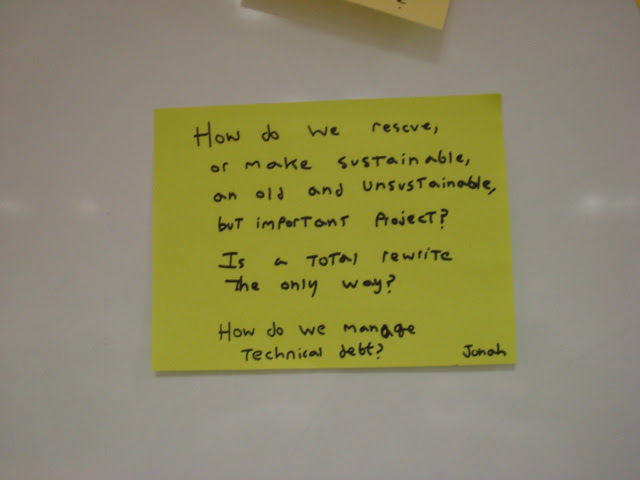 How do we rescue,
or make sustainable,
an old and unsustainable,
but important project?
Is a total rewrite
the only way?
How do we manage
technical debt?
Jonah